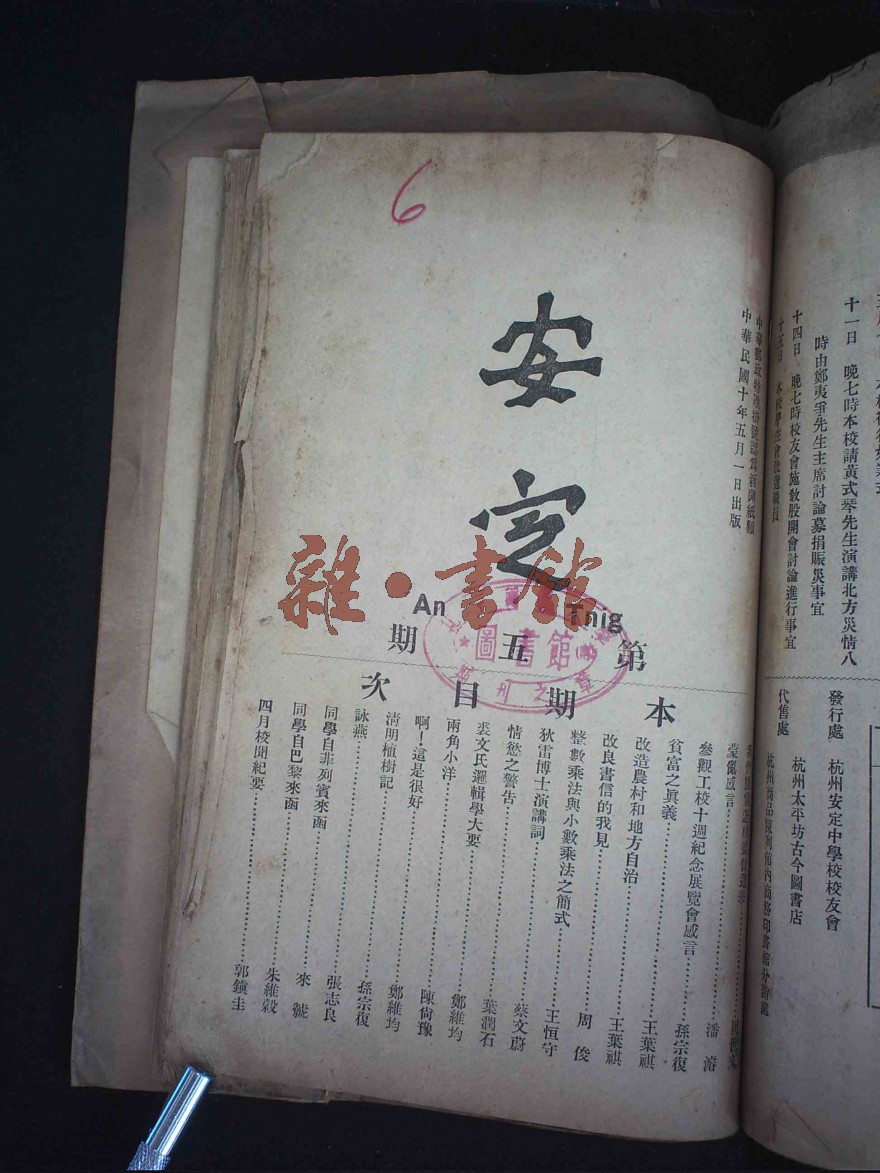 6
中華郵政特准掛號認爲新聞紙類
中華民國十年五月一日出版
安定
An Tnig
第五期
雜·書館
圖書館
本期目次
蒙傭感言 潘濬
參觀工校十週紀念展覽會感言 孫宗復
貧富之眞義 王葉祺
改造農村和地方自治 王葉祺
改良書信的我見 周俊
整數乘法與小數乘法之簡式 王恒守
狄雷博士演講詞 蔡文蔚
情慾之警告 葉潤石
裘文氏邏輯學大要 鄭維均
兩角小洋 陳尙豫
啊!這是很好 鄭維均
淸明植樹記 孫宗復
詠燕 張志良
同學自非列賓來函 來虢
同學自巴黎來函 朱維榖
四月校聞紀要 郭鎭圭
十一日 晚七時本校請黃式琴先生演講北方災情八
時由鄭夷爭先生主席討論募捐賑災事宜
十四日 晚七時校友會施敎股開會討論進行事宜
十五日 本校學生會改選職員
發行處 杭州安定中學校校友會
代售處 杭州太平坊古今圖書店
杭州商品陳列館內商務印書館分售處